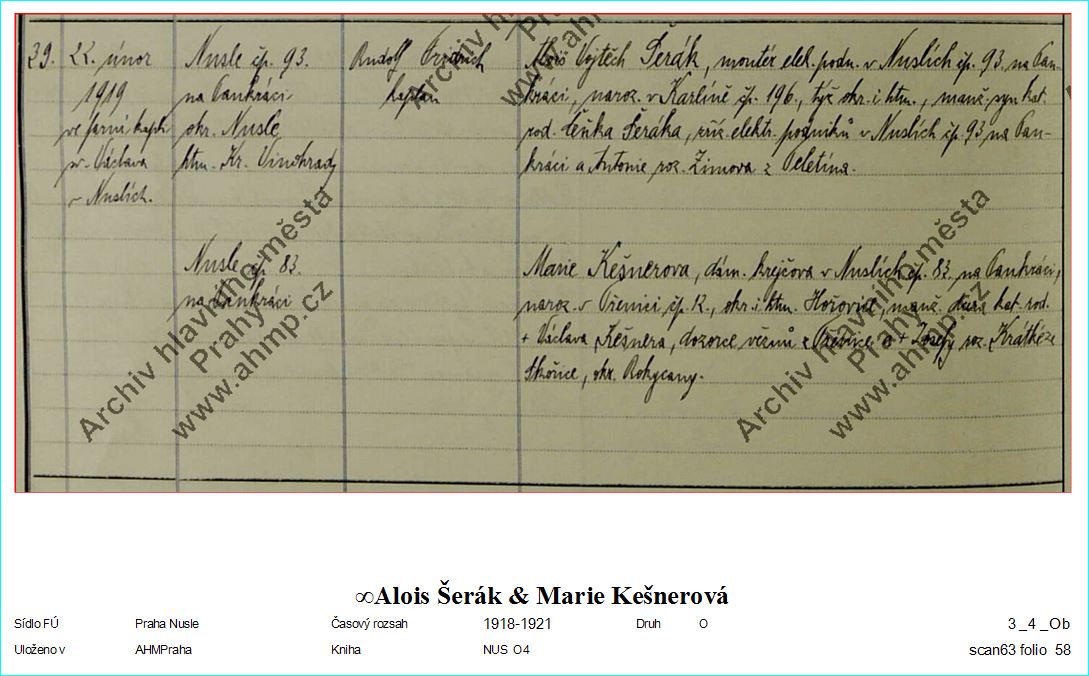 39.
22. únor
1919
ve farní kapli
sv. Václava
v Nuslích.
Nusle čp. 93.
na Pankráci
okr. Nusle
htm. Kr. Vinohrady
Rudolf
kaplan
Alois Vojtěch Šerák, montér elek. podn. v Nuslích čp. 93 na Pan-
kráci, naroz. v Karlíně čp. 196., týž okr. i htm., manž. syn kat.
rod. Čeňka Šeráka, elektr. podniků v Nuslích čp. 93 na Pan-
kráci a Antonie roz. Zimova z
Nusle čp. 83.
na Pankráci
Marie Kešnerova, dám. krejčova v Nuslích čp. 83. na Pankráci,
naroz. v čp. 12., okr. i htm. Hořovice, manž. dcera kat. rod.
+ Václava Kešnera, dozorce vězňů z a + Josefy roz. Krátké z
okr. Rokycany.
Archiv hlavního města
Prahy
www.ahmp.cz
Archiv hlavního města
Prahy
www.ahmp.cz
Archiv hl
Praha
www.ahm
∞Alois Šerák & Marie Kešnerová
Sídlo FÚ Praha Nusle Časový rozsah 1918-1921 Druh O 3_4_Ob
Uloženo v AHMPraha Kniha NUS O4 scan63 folio 58